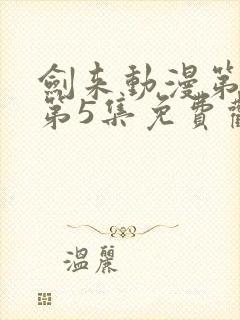 劍来動漫第
第5集免費觀
溫麗